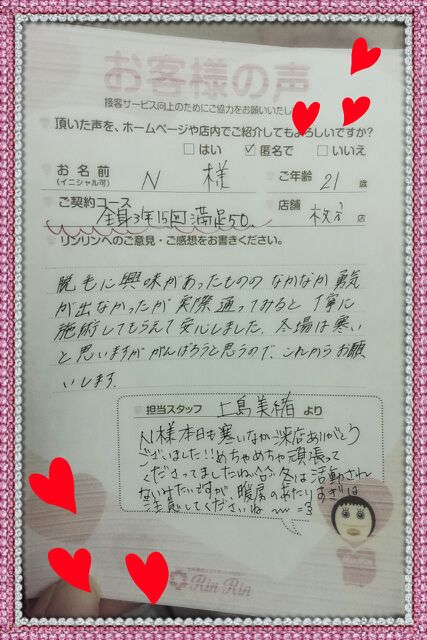 お客様の声
接客サービス向上のためにご協力をお願いいたし
頂いた声を、ホームページや店内でご紹介してもよろしいですか?
□はい ☑匿名で □いいえ
お名前 (イニシャル可) N 様 ご年齢 21 歳
ご契約コース 全身3年15回満足50 店舗 枚方 店
リンリンへのご意見・ご感想をお書きください。
脱もに興味があったものの なかなか勇気
が出なかったが実際通ってみると 丁寧に
施術してもらえて安心しました。冬場は寒い
と思いますががんばろうと思うので、これからお願
いします。
担当スタッフ 上島美緒 より
N様本日も寒いなか来店ありがとう
ございました!!めちゃめちゃ頑張って
くださってましたね 冬は活動され
ないみたいですが 暖房のあたりすぎは
注意してくださいね
Rin Rin